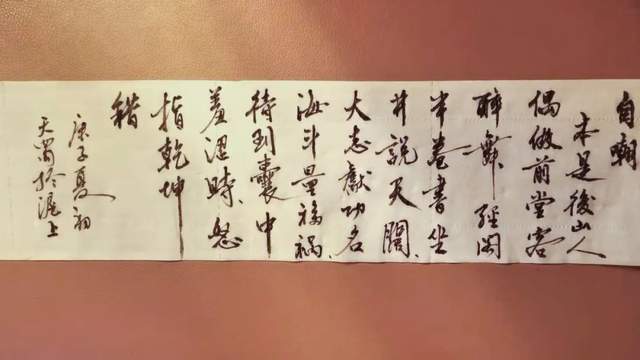 自嘲
本是後山人
偶做前堂客
醉舞經閣
半卷書坐
井說天闊、
大志戲功名
海斗量福禍、
待到囊中
羞澀時、怒
指乾坤
錯
庚子夏初
於滬上